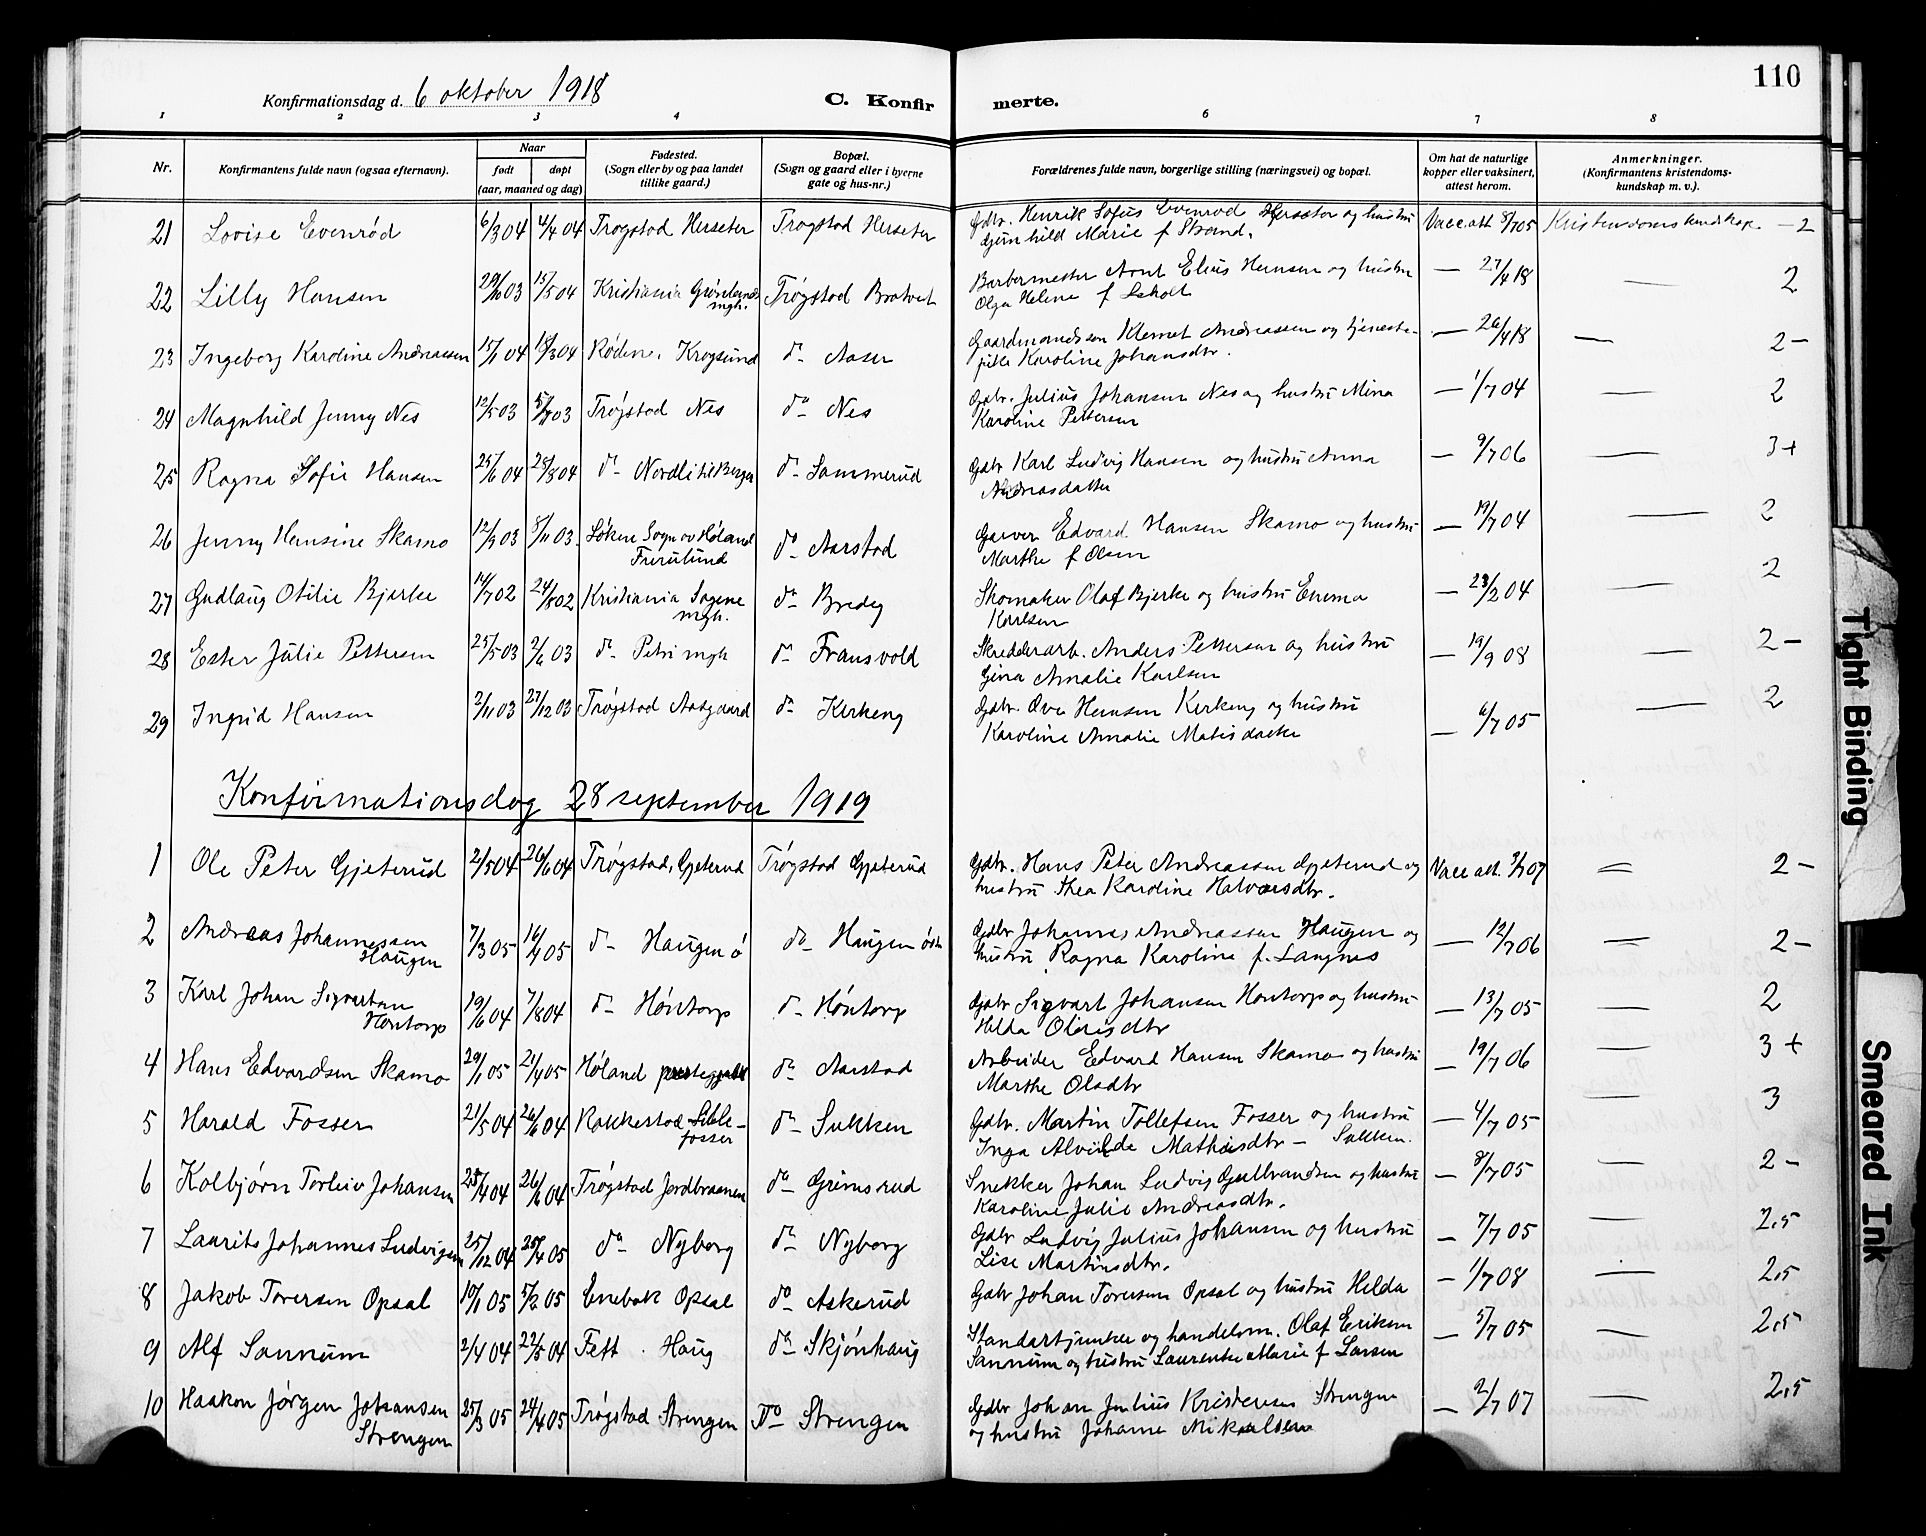 110
Konfirmationsdag d. 6 oktober 1918
C. Konfirmerte.
1 2 3 4 6 7 8
Nr.
Konfirmantens fulde navn (ogsaa efternavn).
Naar
født døpt
(aar, maaned og dag)
Fødested.
(Sogn eller by og paa landet
tillike gaard.)
Bopæl.
(Sogn og gaard eller i byerne
gate og hus-nr.)
Forældrenes fulde navn, borgerlige stilling (næringsvei) og bopæl.
Om hat de naturlige
kopper eller vaksinert,
attest herom.
Anmerkninger.
(Konfirmantens kristendoms-
kundskap m. v.)
21 Lovise Evenrød 6/3 04 4/4 04 Trøgstad Herseter Trøgstad Herseter Gdbr. Henrik Sofus Evenrød Herseter og hustru Vacc.att 8/7 05 Kristendomskundskap. - 2
Gunhild Marie f Strand.
22 Lilly Hansen 29/10 03 15/5 04 Kristiania Grønlands Trøgstad Bratvet Barbermester Arnt Elius Hansen og hustru — 27/4 18 — 2
mgh. Olga Helene f
23 Ingeborg Karoline Andreassen 15/1 04 13/3 04 Rødenes Krogsund do Aaser Gaardmandssøn Klemet Andreassen og tjeneste- — 26/4 18 — 2-
pike Karoline Johansdtr.
24 Magnhild Jenny Nes 12/5 03 5/7 03 Trøgstad Nes do Nes Gdbr. Julius Johansen Nes og hustru Mina — 1/7 04 — 2
Karoline Pettersen
25 Ragna Sofie Hansen 25/6 04 28/8 04 do Nordli til Berger do Sammerud Gdbr Karl Ludvig Hansen og hustru Anna — 9/7 06 — 3+
Andreasdatter
26 Jenny Hansine Skamo 12/9 03 8/11 03. Løken Sogn av Høland do Aarstad Garver Edvard Hansen Skamo og hustru — 19/7 04 — 2
Marthe f Olsen
27 Gudlaug Otilie Bjerke 14/7 02 24/8 02 Kristiania Sagene do Bredeg Skomaker Olaf Bjerke og hustru Emma — 23/2 04 — 2
mgh. Karlsen
28 Ester Julie Pettersen 25/5 03 2/6 03 do Petri mgh do Fransvold Skredderarb. Anders Pettersen og hustru — 19/9 08 — 2-
Gina Amalie Karlsen
29 Ingrid Hansen 2/11 03 27/12 03 Trøgstad Aasgaard do Kirkeng Gdbr. Ove Hansen Kirkeng og hustru — 6/7 05 — 2
Karoline Amalie Matisdatter
Konfirmationsdag 28 september 1919
1 Ole Peter Gjeterud 2/5 04 26/6 04 Trøgstad, Gjeterud Trøgstad Gjeterud Gdbr. Hans Peter Andreassen Gjeterud og Vacc att. 3/7 07 = 2-
hustru Thea Karoline Halvorsdtr.
2 Andreas Johannessen 7/3 05 16/4 05 do Haugen ø do Haugen østr Gdbr Johannes Andreassen Haugen og — 12/7 06 — 2-
Haugen hustru Ragna Karoline f. Langnes
3 Karl Johan Sigvartsen 19/6 04 7/8 04 do Høntorp do Høntorp Gdbr Sigvart Johansen Høntorp og hustru — 13/7 05 — 2
Høntorp Hilda Olausdtr
4 Hans Edvardsen Skamo 29/1 05 21/4 05 Høland prestegjeld do Aarstad Arbeider Edvard Hansen Skamo og hustru — 19/7 06 — 3+
Marthe Olsdtr
5 Harald Fosser 21/5 04 26/6 04 Rakkestad Lille- do Sukken Gdbr. Martin Tollefsen Fosser og hustru — 4/7 05 — 3
fosser Inga Alvilde Mathisdtr — Sukken.
6 Kolbjørn Torleiv Johansen 25/4 04 26/6 04 Trøgstad Jordbraanen do Grimsrud Snekker Johan Ludvig Gulbrandsen og hustru — 8/7 05 — 2-
Karoline Julie Andreasdtr.
7 Laurits Johannes Ludvigsen 25/12 04 25/4 05 do Nyborg do Nyborg Gdbr Ludvig Julius Johansen og hustru — 7/7 05 — 2,5
Lise Martinsdtr.
8 Jakob Toresen Opsal 10/1 05 5/2 05 Enebak Opsal do Askerud Gdbr Johan Toresen Opsal og hustru Hilda — 1/7 08 — 2,5
9 Alf Sannum 2/4 04 22/5 04 Fett. Haug do Skjønhaug Standartjunker og handelsm. Olaf Eriksen — 5/7 05 — 2,5
Sannum og hustru Laurentse Marie f Larsen
10 Haakon Jørgen Johansen 25/3 05 24/4 05 Trøgstad Strengen Do Strengen Gdbr Johan Julius Kristensen Strengen — 2/7 07 — 2,5
Strengen og hustru Johanne Mikalsen
Tight Binding
Smeared Ink